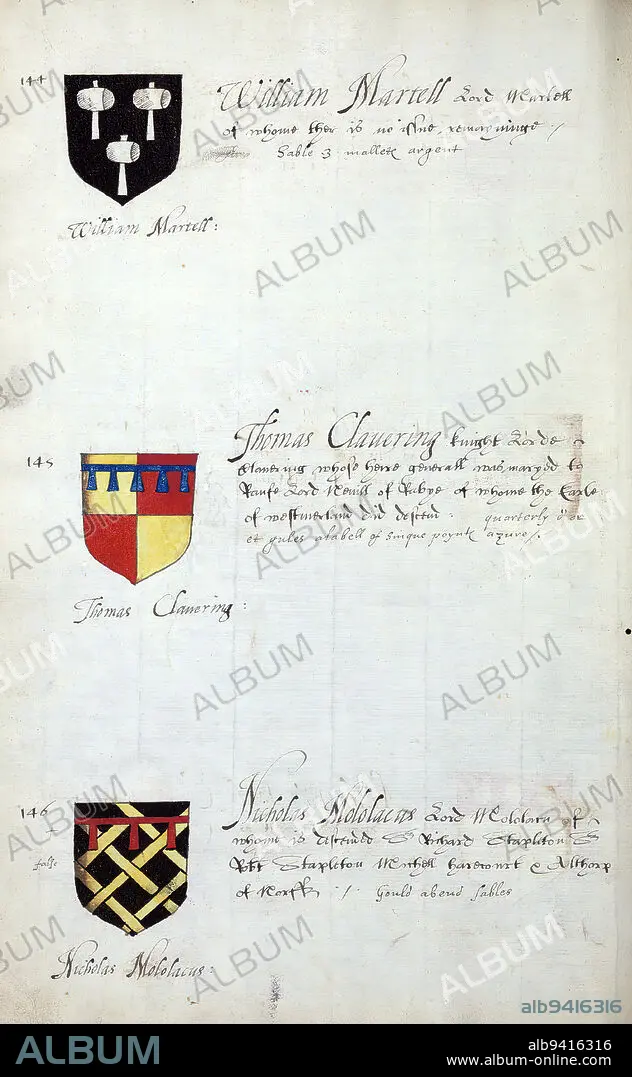 144
William Martell Lord Martell
of whome ther is no issue remayninge /
Sable 3 mallets argent
William Martell:
145
Thomas Clavering knight Lorde
Clavering whose heire generall was maryed to
Raufe Lord Nevill of Rabye of whome the Earle
of westmerland did descend . quarterly d'or
et gules a labell of sinque poynts azure /.
Thomas Clavering:
146
false
Nicholas Mololacus Lord Mololacu of
whom is discended Sr Richard Stapleton Sr
Robt Stapleton Michell harecourt & Althorp
of Norffk . / . Gould a bend sables
Nicholas Mololacus:
ALBUM
alb9416316
ALBUM
alb9416316
www.album-online.com